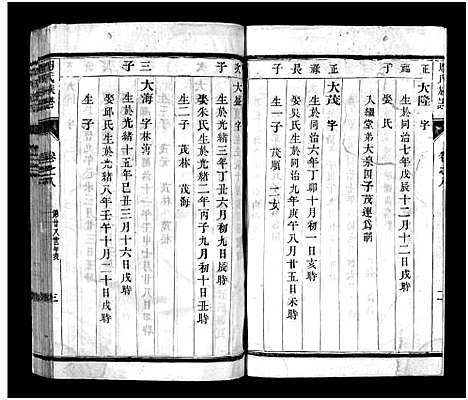 正
大隆 字
生於同治七年戊辰十二月十二日戌時
娶氏
入繼堂弟大泉因子茂運爲嗣
正
長子
大茂 字
生於同治六年丁卯十月初一日亥時
娶吳氏生於同治九年庚午八月廿五日未時
生一子 茂順 一女
次子
大 字
生於光緒三年丁丑六月初九日辰時
娶朱氏生於光緒二年丙子九月初十日丑時
生二子 茂林 茂海
三子
大海 字林
生於光緒十五年己丑三月十六日戌時
娶邱氏生於光緒八年壬午十月二十日戌時
生子
氏族譜
卷之八
第廿八世
三